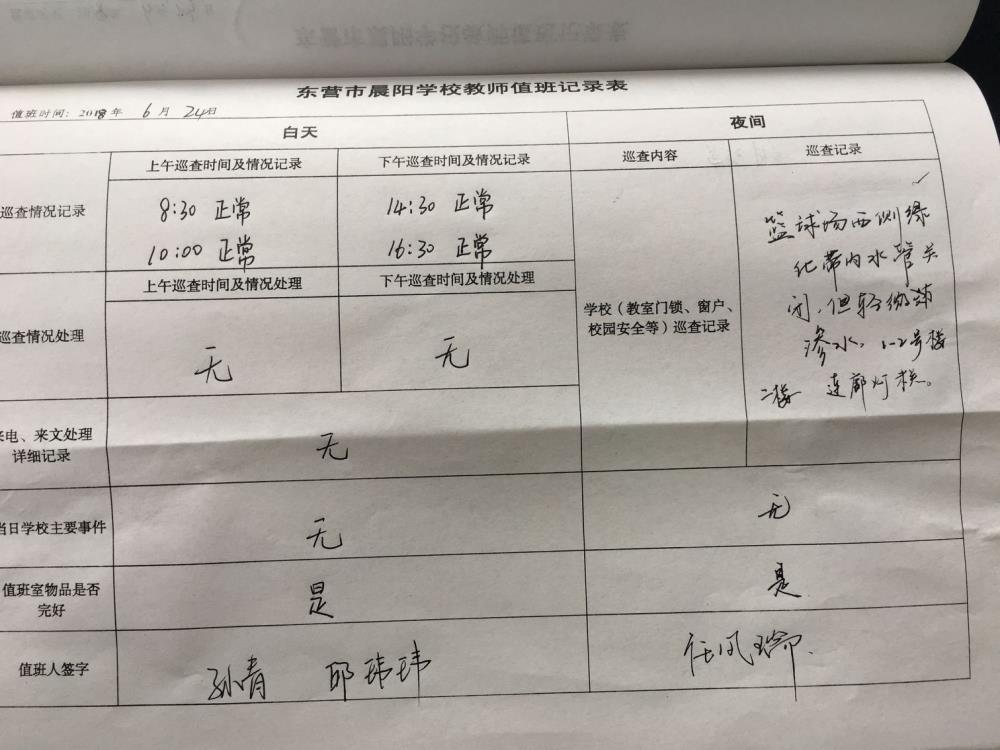 东营市晨阳学校教师值班记录表
值班时间：2018年 6月 24日
白天 夜间
上午巡查时间及情况记录 下午巡查时间及情况记录 巡查内容 巡查记录
巡查情况记录
8:30 正常 14:30 正常
10:00 正常 16:30 正常
上午巡查时间及情况处理 下午巡查时间及情况处理
巡查情况处理
无 无
学校（教室门锁、窗户、
校园安全等）巡查记录
篮球场西侧绿
化带内水管关
闭，但
渗水，1-2号楼
二楼 连廊灯
来电、来文处理
详细记录
无
当日学校主要事件
无 无
值班室物品是否
完好
是 是
值班人签字
孙青 邱玮玮 任凤